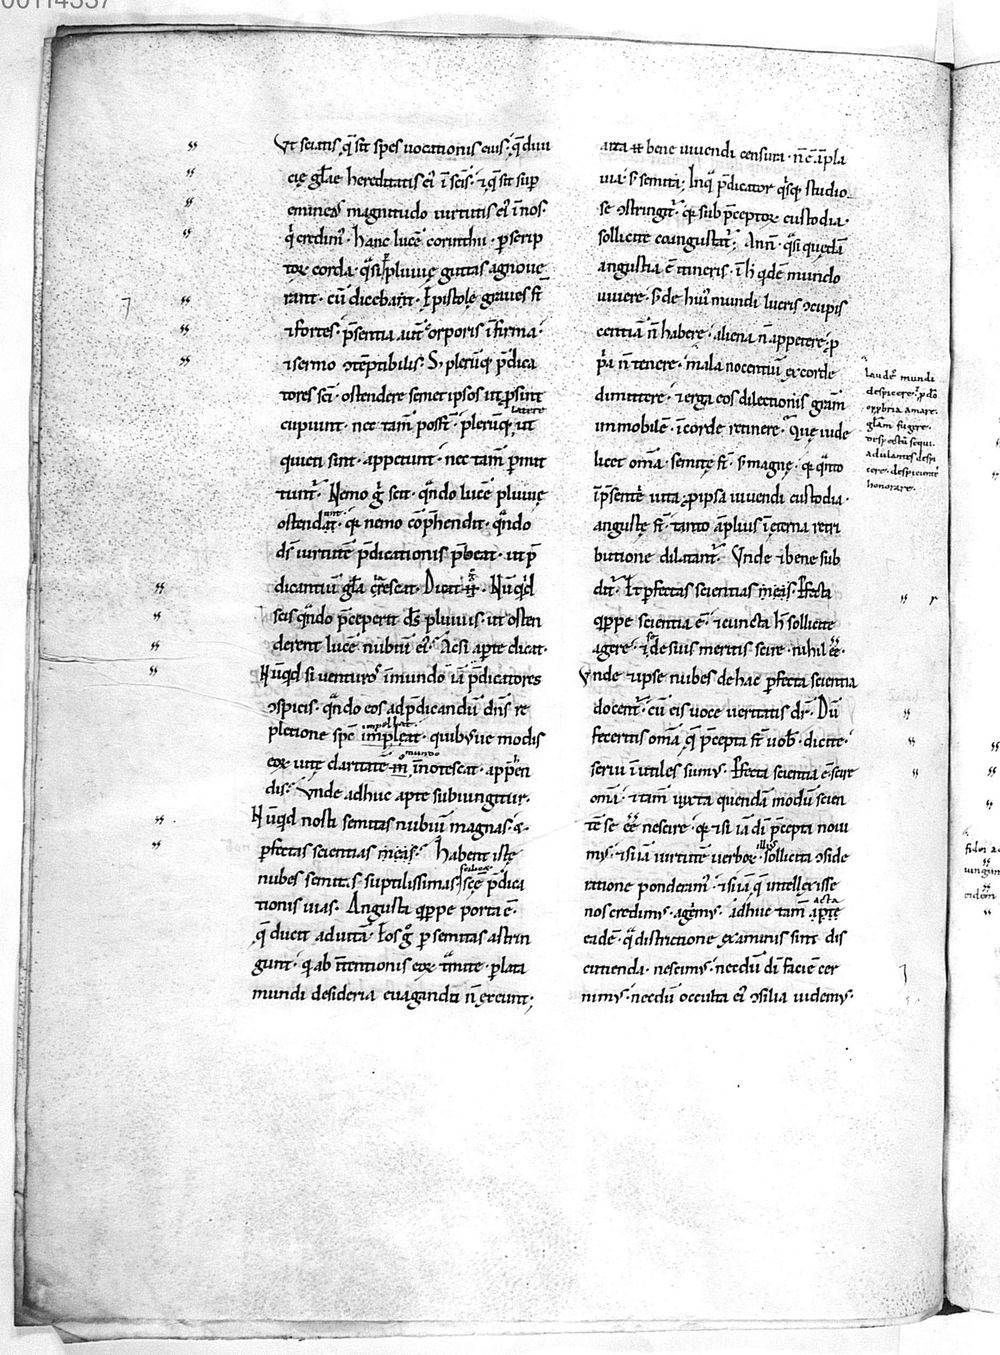 00114337
Ut sciatis q̄ sit spes uocationis eius· q̄ diui
cię gl̄ię hereditatis ei᷒ ī sc̄is· ⁊ q̄ sit sup̄
eminens magnitudo uirtutis ei᷒ ī nos·
q̇ credim᷒· hanc lucē corinthii· p̄ scrip
toꝝ corda· q̄si pluuię guttas agnoue
rant· cū dicebant· Epistolę graues st̄
⁊ fortes· p̄sentia aut̄ corporis īfirma·
⁊ sermo ↄtēptibilis· S; plerūq; p̄dica
tores sc̄i· ostendere semet ipsos ut p̄sint
latere
cupiunt· nec tam̄ poss̄t· plerūq; ut
quieti sint· appetunt· nec tam̄ p̄mit
tunt᷒· Nemo g̊ scit· qn̄do lucē pluuię
ostendat· q; nemo cōp̄hendit· qn̄do
ds̄ uirtutē p̄dicationis p̄beat· ut p̄
dicantiū gl̄a c̄rescat· Dicat g̊· Nūq̇d
scis qn̄do p̄ceperit ds̄ pluuiis· ut osten
derent lucē nubiū ei᷒· Ac si ap̄te dicat·
Nūq̇d si uenturos ī mundo iā p̄dicatores
ↄspicis· qn̄do eos ad p̄dicandū dn̄s re
impellat·
pletione sp̄c impleat· quibusue modis
mundo
eoꝝ uitę claritatē īnotescat· app̄hen
dis· Unde adhuc apte subiungitur·
Nūq̇d nosti semitas nubiū magnas· ⁊
perfectas scientias meas· Habent istę
nubes semitas suptilissimas· sc̄ę p̄dica
tionis uias· Angusta q̄ppe porta ē·
q̄ ducit ad uitā· Eos g̊ p̄ semitas astrin
gunt· q; ab ītentionis eoꝝ t̄mite· p̄ lata
mundi desideria euaganda n̄ exeunt·
arta ⁊ bene uiuendi censura· n̄ ē āpla
uia· s; semita· In q̄ p̄dicator q̇sq; studio
se ↄstringit᷒· q; sub p̄ceptoꝝ custodia·
sollicite coangustat᷒· Ann̄· q̄si quędā
angustia ē itineris· ī h̄ q̇dē mundo
uiuere· s; de hui᷒ mundi lucris ↄcupis
centiā n̄ habere· aliena n̄ appetere· p̄
p̄a n̄ tenere· mala nocentiū ex corde
dimittere· ⁊ erga eos dilectionis gratiā
immobilē· ī corde retinere· Quę uide
licet om̄a· semitę st̄· s; magnę· q; q̄nto
īp̄senti uita p̄ ipsa uiuendi custodia·
angustę st̄· tanto āplius ī ęterna retri
butione dilatant᷒· Unde ⁊ bene sub
dit᷒· Et p̄fectas scientias meas· Perfecta
q̄ppe scientia ē· ⁊ cuncta h̄ sollicite
agere· ⁊ de suis meritis scire· nihil eē·
Unde ⁊ ipse nubes de hac perfecta scientia
docent᷒· cū eis uoce ueritatis dr̄· Dū
feceritis om̄a q̄ p̄cepta st̄ uob̄· dicite·
serui īutiles sumus· Perfecta scientia ē· scire
om̄a· ⁊ tam̄ iuxta quendā modū scien
tē se eē nescire· q; ⁊ si iā dī p̄cepta noui
mus· ⁊ si iā uirtutē uerboꝝ illius sollicita ↄside
ratione ponderam᷒· ⁊ si iā q̄ intellexisse
nos credimus· agimus· adhuc tam̄ acta
eadē· q̄ districtione examinis sint dis
cutienda· nescimus· necdū dī faciē cer
nimus· necdū occulta ei᷒ ↄsilia uidemus·
laudē mundi
despicere· p̄ dō
opprobria amare·
gl̄am fugere·
despectū sequi·
adulantes despi
cere· despicientes
honorare·